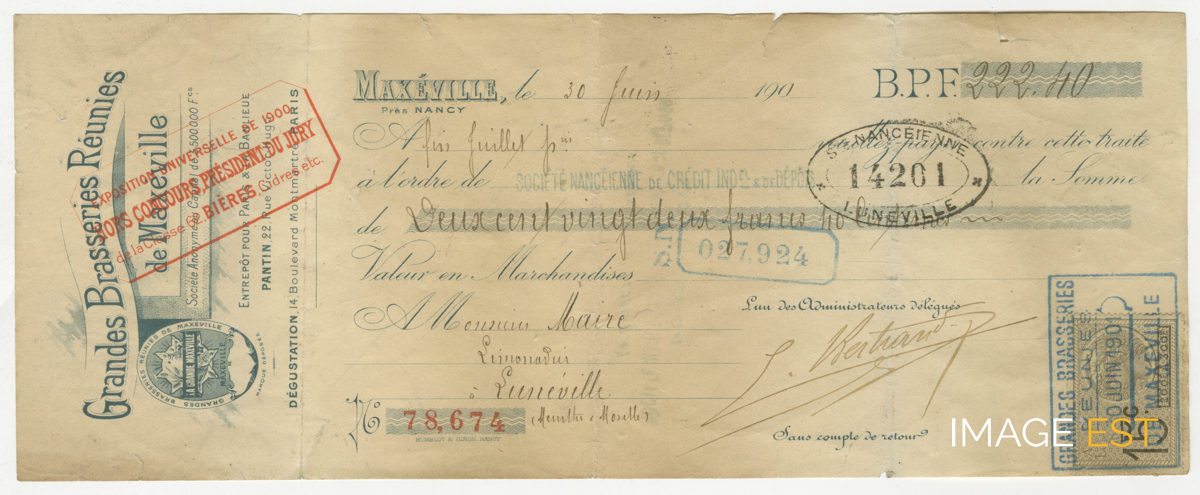 Grandes Brasseries Réunies
de Maxéville
Société Anonyme au Capital de 2.500.000 Fcs
ENTREPÔT POUR PARIS & LA BANLIEUE
PANTIN, 22, Rue Victor Hugo
DÉGUSTATION, 14, Boulevard Montmartre, PARIS
EXPOSITION UNIVERSELLE DE 1900
HORS CONCOURS, PRÉSIDENT DU JURY
de la Classe de BIÈRES, Cidres etc.
GRANDES BRASSERIES RÉUNIES DE MAXEVILLE
LA GRANDE MAXEVILLE
MAXEVILLE
MARQUE DÉPOSÉE
MAXÉVILLE, le 30 Juin 190
Près NANCY
B.P.F. 222.40
A fin Juillet prx contre cette traite
à l'ordre de SOCIÉTÉ NANCÉIENNE DE CRÉDIT INDel & DE DÉPÔTS la Somme
Sté NANCÉIENNE
14201
LUNÉVILLE
de Deux cent vingt deux francs 40 Centimes
027,924
Valeur en Marchandises
L'un des Administrateurs délégués
A Monsieur Maire
Bertrand
Limonadier
à Lunéville
(Meurthe & Moselle)
No 78,674
NANCY
Sans compte de retour
GRANDES BRASSERIES
RÉUNIES
30 JUIN 1901
DE MAXEVILLE
15c
IMAGE EST